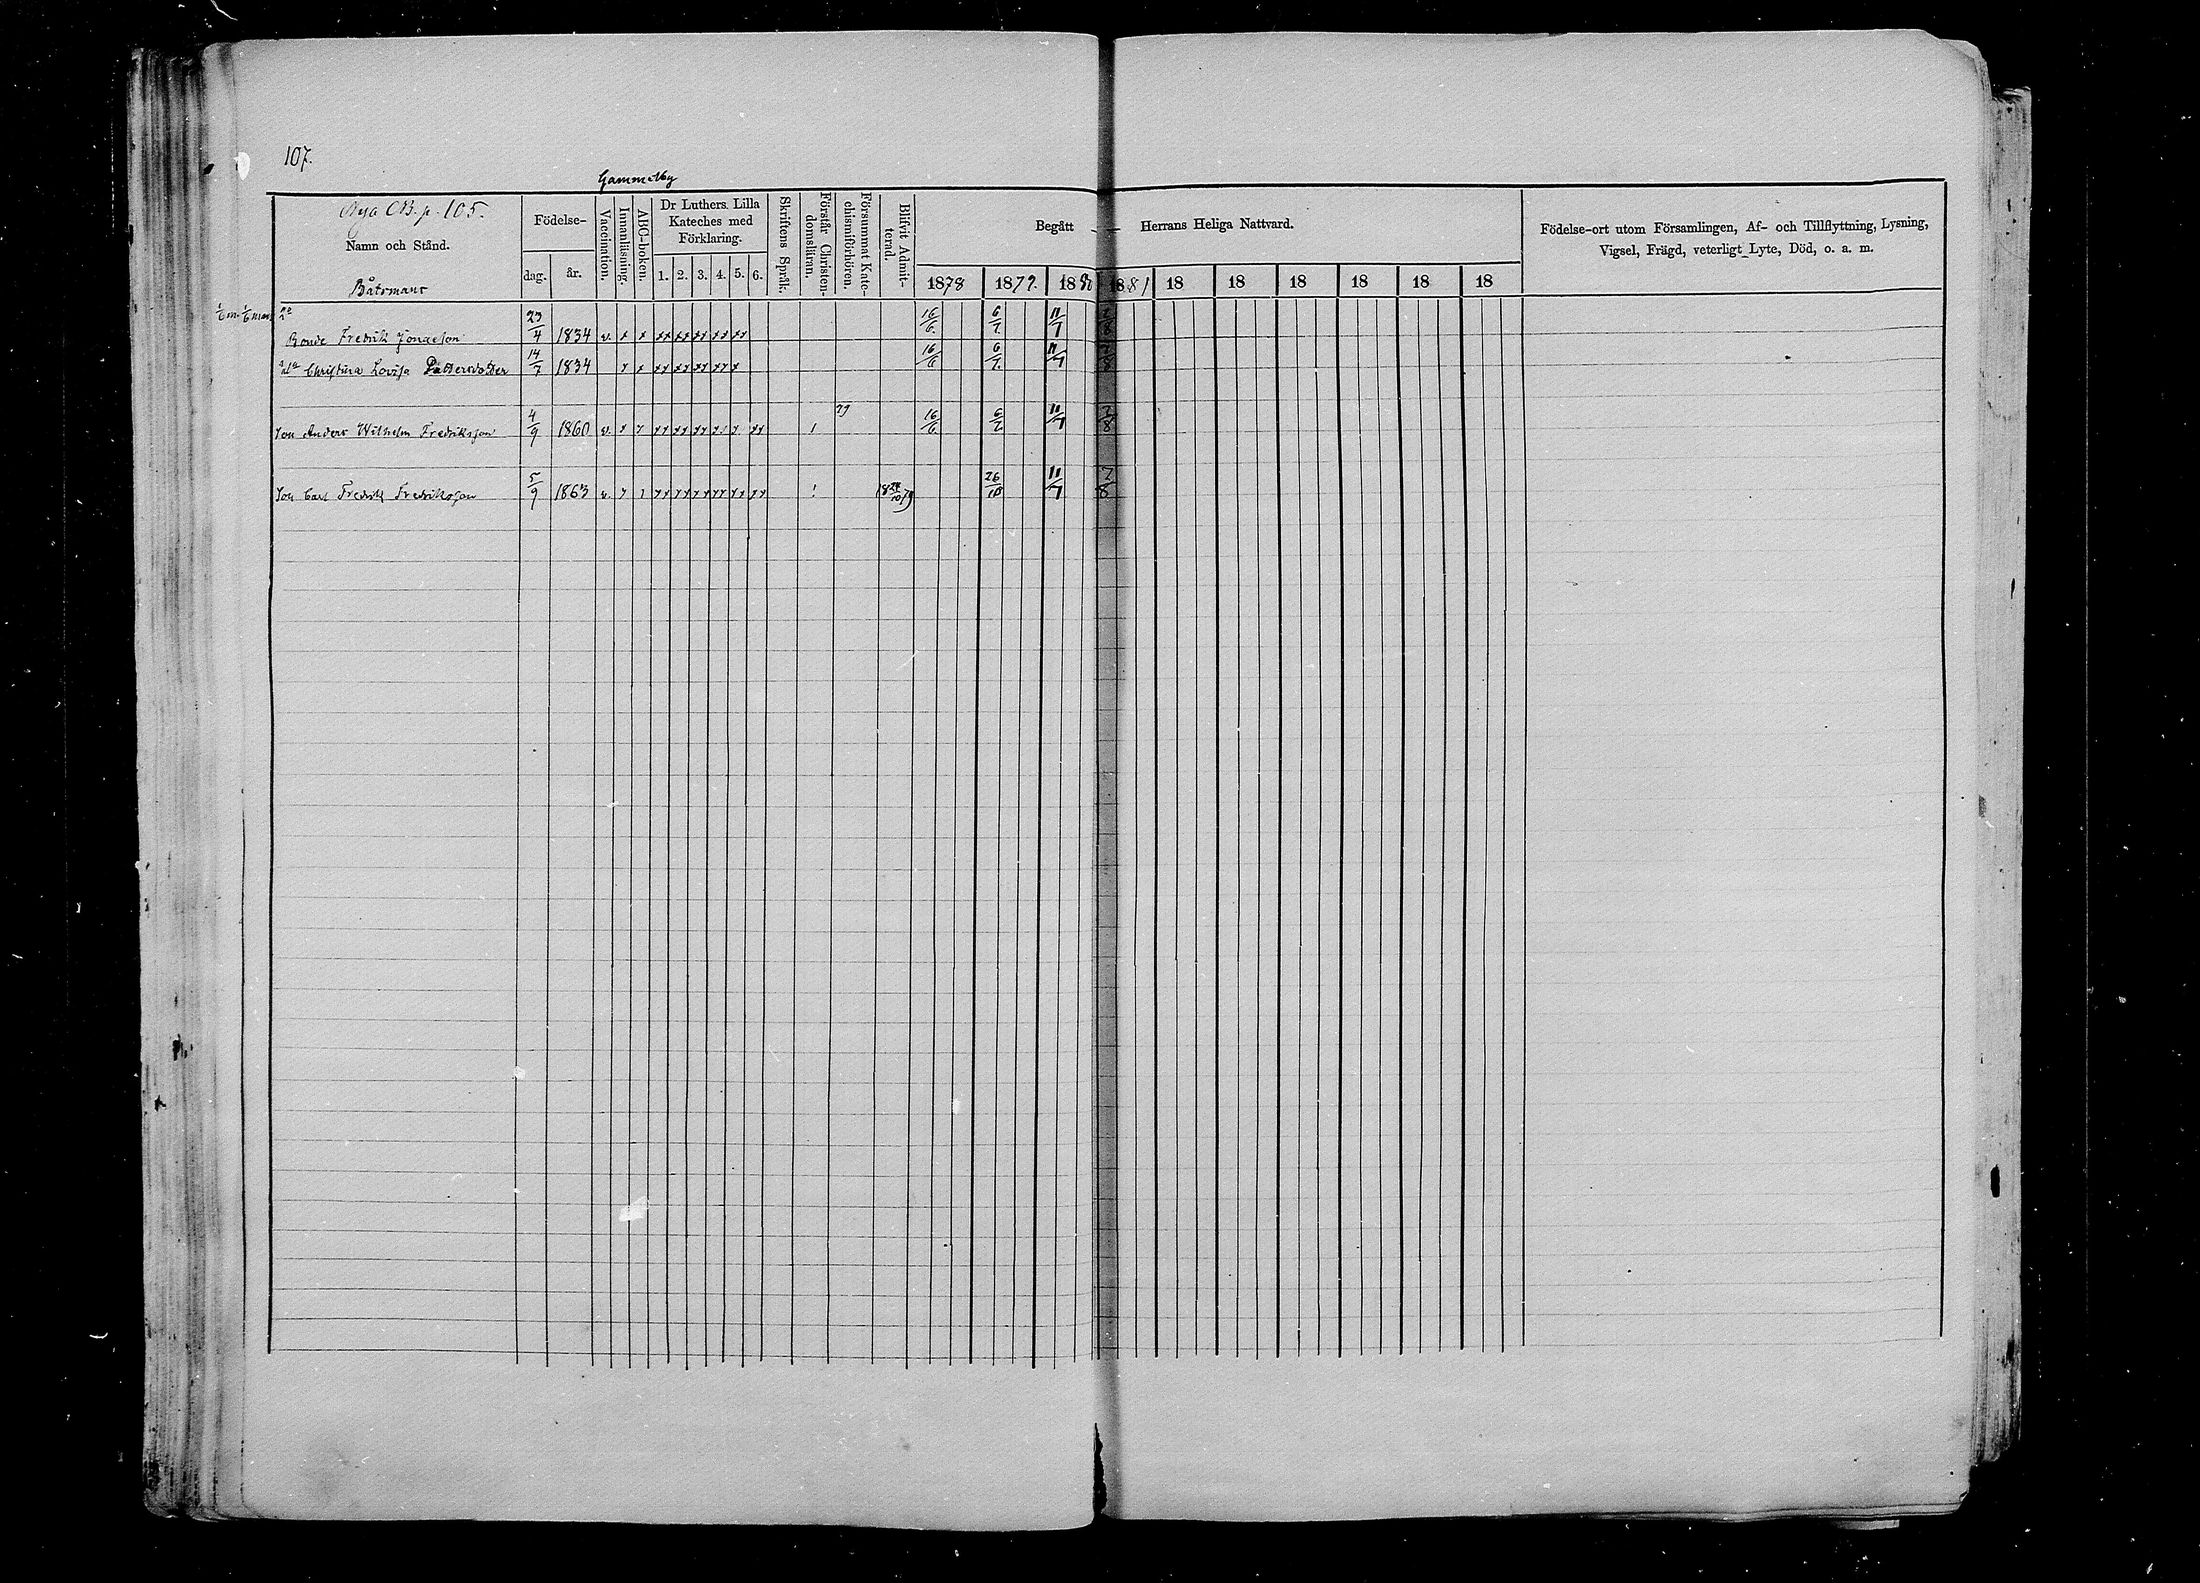 107.
Gammelby
Nya CB. p. 105.
Namn och Stånd.
Båtsmans
Födelse-
dag. år.
Vaccination.
Innanläsning.
ABC-boken.
Dr Luthers Lilla
Kateches med
Förklaring.
1. 2. 3. 4. 5. 6.
Skriftens Språk.
Förstår Christen-
domsläran.
Försummat Kate-
chismiförhören.
Blifvit Admit-
terad.
Begått Herrans Heliga Nattvard.
1878 1879. 1880 1881 18 18 18 18 18 18
Födelse-ort utom Församlingen, Af- och Tillflyttning, Lysning,
Vigsel, Frägd, veterligt Lyte, Död, o. a. m.
Bonde Fredrik Jonaeson 29/4 1834 v. x x xx xx xx xx xx 16/6. 6/7. 11/7 7/8
Christina Lovisa Pettersdotter 14/7 1834 x x xx xx xx xx x 16/6 6/7. 11/7 7/8
Son Anders Wilhelm Fredriksson 4/9 1860 v. x x xx xx xx x x xx 1 29 16/6. 6/7. 11/7 7/8
Son Carl Fredrik Fredriksson 5/9 1863 v. x x xx xx xx xx xx xx ! 18 26/10 79 26/10 11/7 7/8